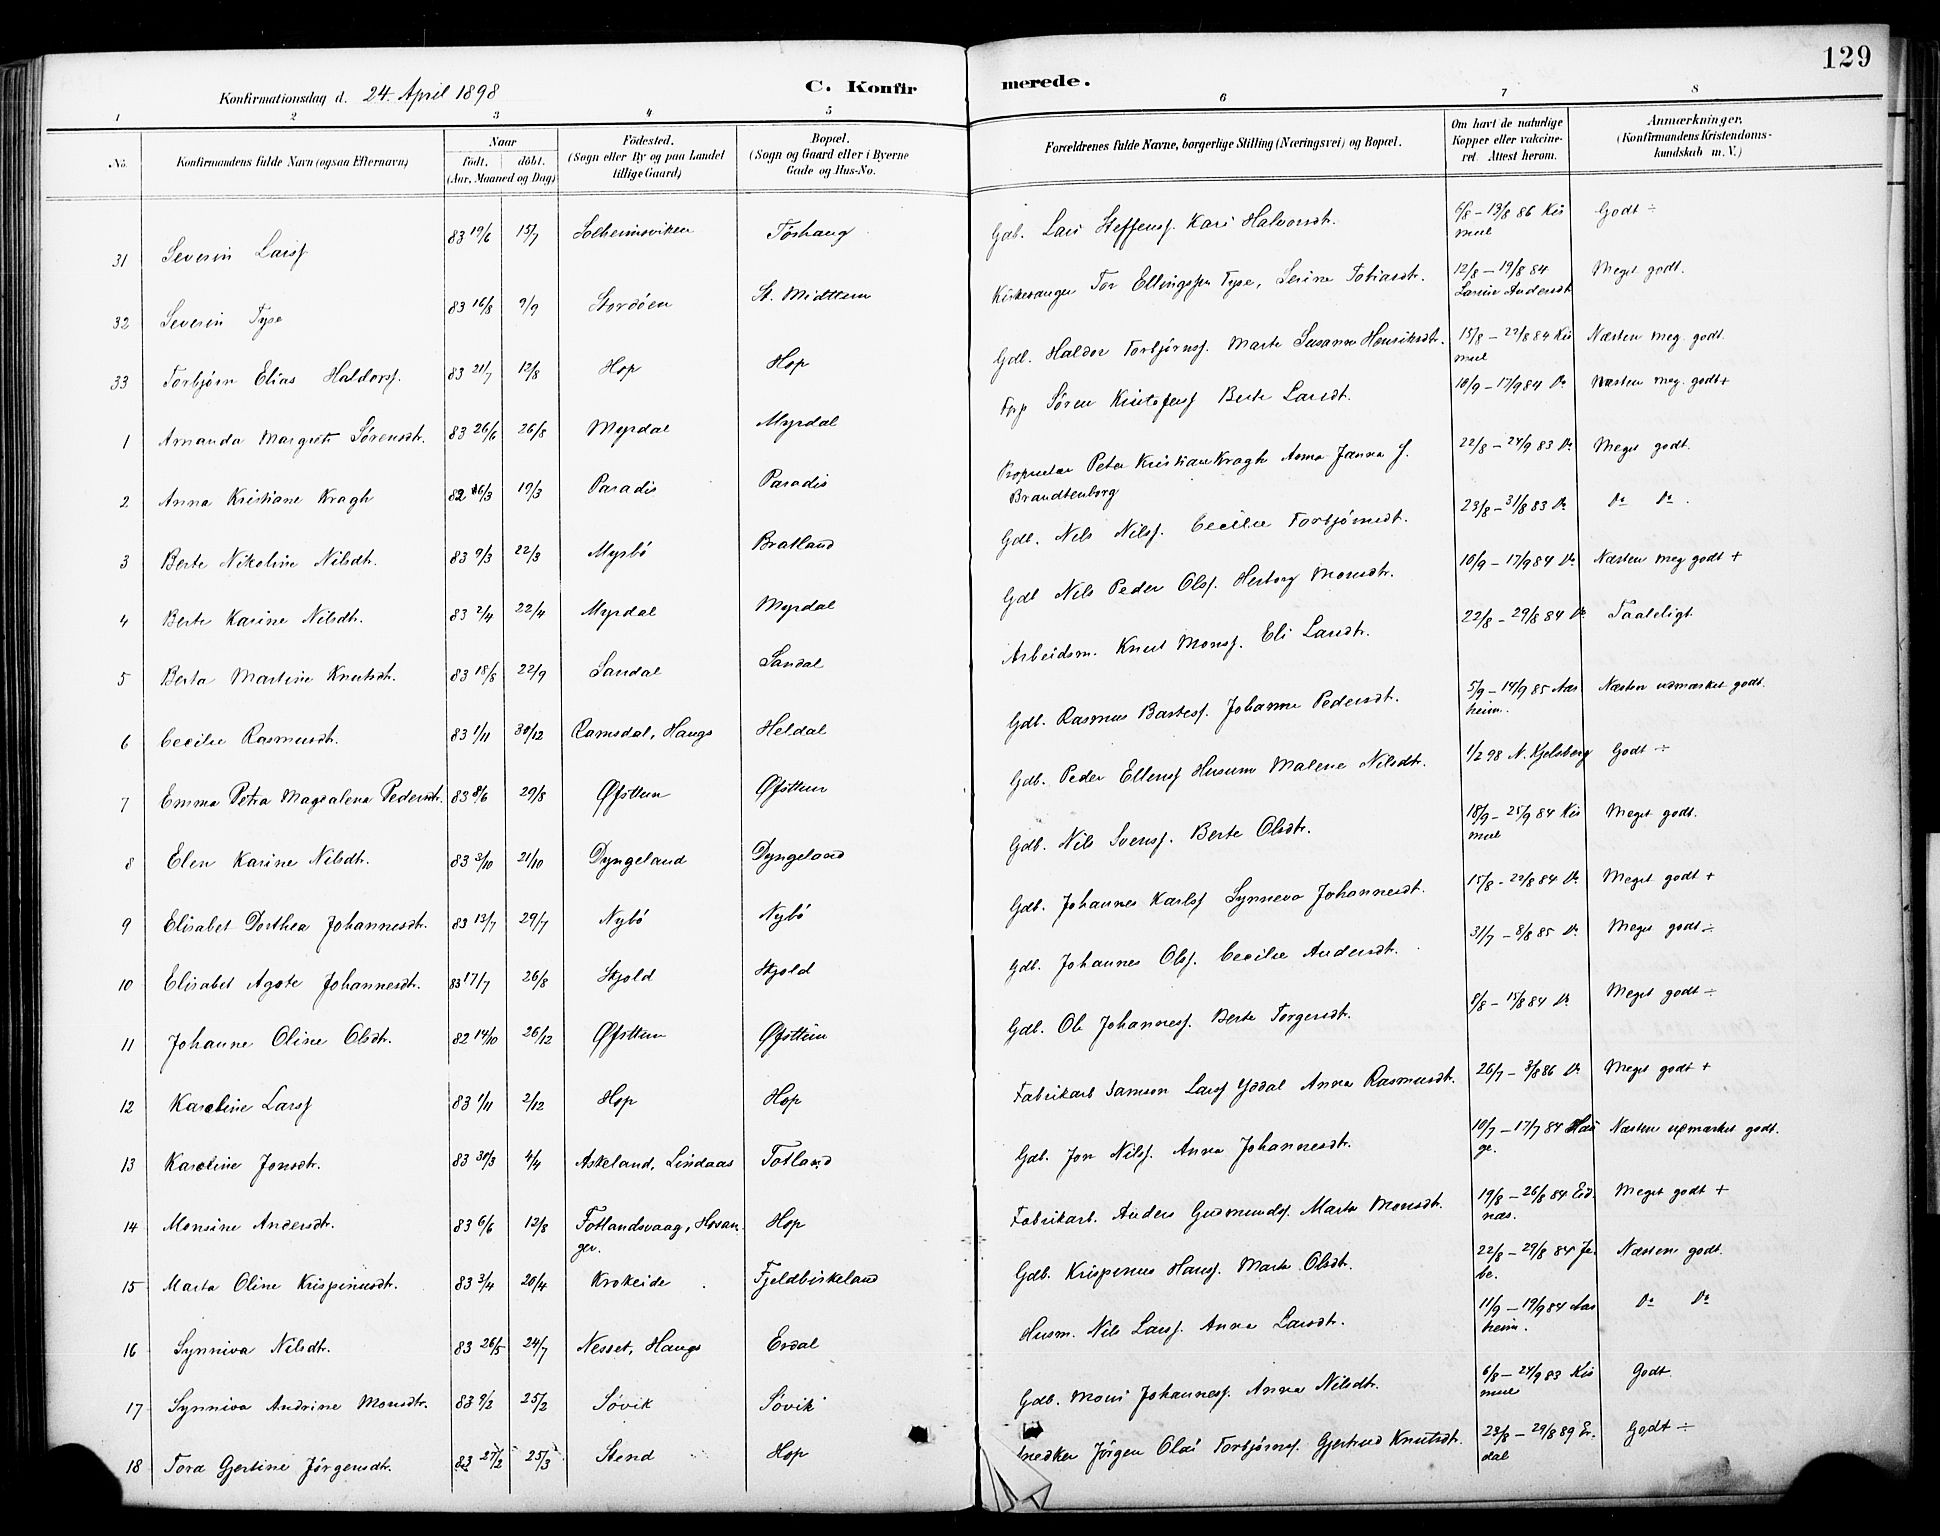 129
Konfirmationsdag d. 24. April 1898
C. Konfirmerede.
1 2 3 4 5 6 7 8
No.
Konfirmandens fulde Navn (ogsaa Efternavn)
Naar
født. døbt.
(Aar, Maaned og Dag)
Fødested.
(Sogn eller By og paa Landet
tillige Gaard)
Bopæl.
(Sogn og Gaard eller i Byerne
Gade og Hus-No.
Forældrenes fulde Navne, borgerlige Stilling (Næringsvei) og Bopæl.
Om havt de naturlige
Kopper eller vakcine-
ret. Attest herom.
Anmærkninger,
(Konfirmandens Kristendoms-
kundskab m. V.)
31 Severin Larsf 83 19/6 15/7 Solheimsviken Tøshaug Gdb. Lars Steffensf. Kari Halvorsdt. 6/8 – 13/8 86 Kis
mul Godt ÷
32 Severin Tyse 83 16/8 9/9 Stordøen St. Midttun Kirkesanger Tor Ellingsen Tyse, Serine Tobiasdt. 12/8 – 19/8 84
Larsine Andersdt Meget godt.
33 Torbjørn Elias Haldorsf. 83 21/7 12/8 Hop Hop Gdb. Haldor Torbjørnsf. Marte Susanne Henriksdt. 15/8 – 22/8 84 Kis
mul Næsten meg. godt.
1 Amanda Margrete Sørensdt. 83 26/6 26/8 Myrdal Myrdal Søren Kristofersf Berte Larsdt. 10/9 – 17/9 84 Do Næsten meg. godt+
2 Anna Kristiane Kragh 82 16/3 19/3 Paradis Paradis Proprietær Peter Kristian Kragh Anna Janna J.
Brandtenborg 22/8 – 24/9 83 Do Meget godt.
3 Berte Nikoline Nilsdt. 83 9/3 22/3 Myrbø Bratland Gdb. Nils Nilsf. Cecilie Torbjørnsdt. 23/8 – 31/8 83 Do Do Do.
4 Berte Karine Nilsdt. 83 2/4 22/4 Myrdal Myrdal Gdb Nils Peder Olsf. Herborg Monsdt. 10/9 – 17/9 84 Do Næsten meg godt +
5 Berta Martine Knutsdt. 83 18/8 22/9 Sandal Sandal Arbeidsm. Knut Monsf. Eli Larsdt. 22/8 – 29/8 84 Do Taaleligt
6 Cecilie Rasmusdt. 83 1/11 30/12 Ramsdal, Haugs Heldal Gdb. Rasmus Bastesf. Johanne Pedersdt. 5/9 – 14/9 85 Aas
heim. Næsten udmærket godt.
7 Emma Petra Magdalena Pedersdt. 83 8/6 29/8 Øfsttun Øfsttun Gdb. Peder Ellensf Husum Malene Nilsdt. 1/2 98 N. Kjelsberg Godt ÷
8 Elen Karine Nilsdt. 83 3/10 21/10 Dyngeland Dyngeland Gdb. Nils Svensf. Berte Olsdt. 18/9 – 25/9 84 Kis
mul Meget godt.
9 Elisabet Dorthea Johannesdt. 83 13/7 29/7 Nybø Nybø Gdb. Johannes Karlsf Synneva Johannesdt. 15/8 – 22/8 84 Do Meget godt +
10 Elisabet Agate Johannesdt. 83 17/7 26/8 Skjold Skjold Gdb. Johannes Olsf. Cecilie Andersdt. 31/7 – 8/8 85 Do Meget godt ÷
11 Johanne Oline Olsdt. 82 14/10 26/12 Øfsttun Øfsttun Gdb. Ole Johannesf. Berte Torgersdt. 8/8 – 15/8 84 Do Meget godt ÷
12 Karoline Larsf 83 1/11 2/12 Hop Hop Fabrikarb Samson Larsf Yddal Anna Rasmusdt. 26/7 – 3/8 86 Do Meget godt +
13 Karoline Jonsdt. 83 30/3 4/4 Askeland, Lindaas Totland Gdb. Jon Nilsf. Anna Johannesdt. 10/7 – 17/7 84 Hau
ge. Næsten udmærket godt.
14 Monsine Andersdt. 83 6/6 12/8 Fotlandsvaag, Hosan-
ger. Hop Fabrikarb. Anders Gudmundsf. Marta Monsdt. 19/8 – 26/8 84 Eid
næs. Meget godt +
15 Marta Oline Krispinusdt. 83 3/4 20/4 Krokeide Fjeldbirkeland Gdb. Krispinus Hansf. Marte Olsdt. 22/8 – 29/8 84 Je-
be. Næsten godt.
16 Synniva Nilsdt. 83 26/5 24/7 Nesset, Haugs Erdal Husm. Nils Larsf. Anna Larsdt. 11/9 – 19/9 84 Aas
heim. Do Do
17 Synniva Andrine Monsdt. 83 9/2 25/2 Søvik Søvik Gdb. Mons Johannesf. Anna Nilsdt. 6/8 – 24/9 83 Kis
mul Godt.
18 Tora Gjertine Jørgensdt. 83 27/2 25/3 Stend Hop Snedker Jørgen Olai Torbjørnsf. Gjertrud Knutsdt. 23/8 – 29/8 89 Er-
dal Godt ÷